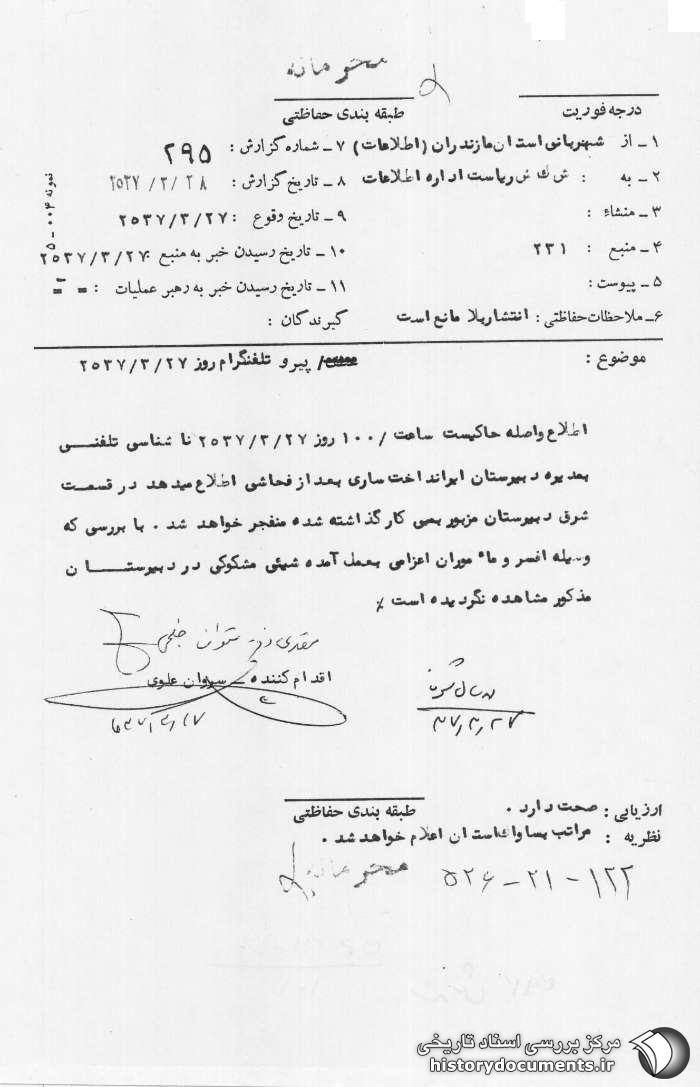 محرمانه
درجه فوریت
طبقه بندی حفاظتی
۱ـ از شهربانی استان مازندران (اطلاعات)
۷ـ شماره گزارش: ۲۹۵
۲ـ به : ش ک ش ریاست اداره اطلاعات
۸ـ تاریخ گزارش: ۲۵۳۷/۳/۲۸
۳ـ منشاء :
۹ـ تاریخ وقوع : ۲۵۳۷/۳/۲۷
۴ـ منبع : ۲۳۱
۱۰ـ تاریخ رسیدن خبر به منبع: ۲۵۳۷/۳/۲۷
۵ـ پیوست :
۱۱ـ تاریخ رسیدن خبر به رهبر عملیات : = =
۶ـ ملاحظات حفاظتی : انتشار بلا مانع است
گیرندگان :
نمونه ۰۰۳ ـ ۵
موضوع : / پیرو تلفنگرام روز ۲۵۳۷/۳/۲۷
اطلاع واصله حاکیست ساعت /۱۰۰ روز ۲۵۳۷/۳/۲۷ نا شناسی تلفنـــی
بمدیره دبیرستان ایراندخت ساری بعد از فحاشی اطلاع میدهد در قسمت
شرق دبیرستان مزبور بمبی کارگذاشته شده منفجر خواهد شد . با بررسی که
وسیله افسر و ماموران اعزامی بعمل آمده شیئی مشکوکی در دبیرستـــان
مذکور مشاهده نگردیده است ٪
اقدام کننده ـ سروان علوی
۳۷/۳/۲۷
ارزیابی : صحت دارد .
طبقه بندی حفاظتی
نظریه : مراتب بساواک استان اعلام خواهد شد .
محرمانه
۱۲۲ - ۲۱ - ۵۲۶
مرکز بررسی اسناد تاریخی
historydocuments.ir